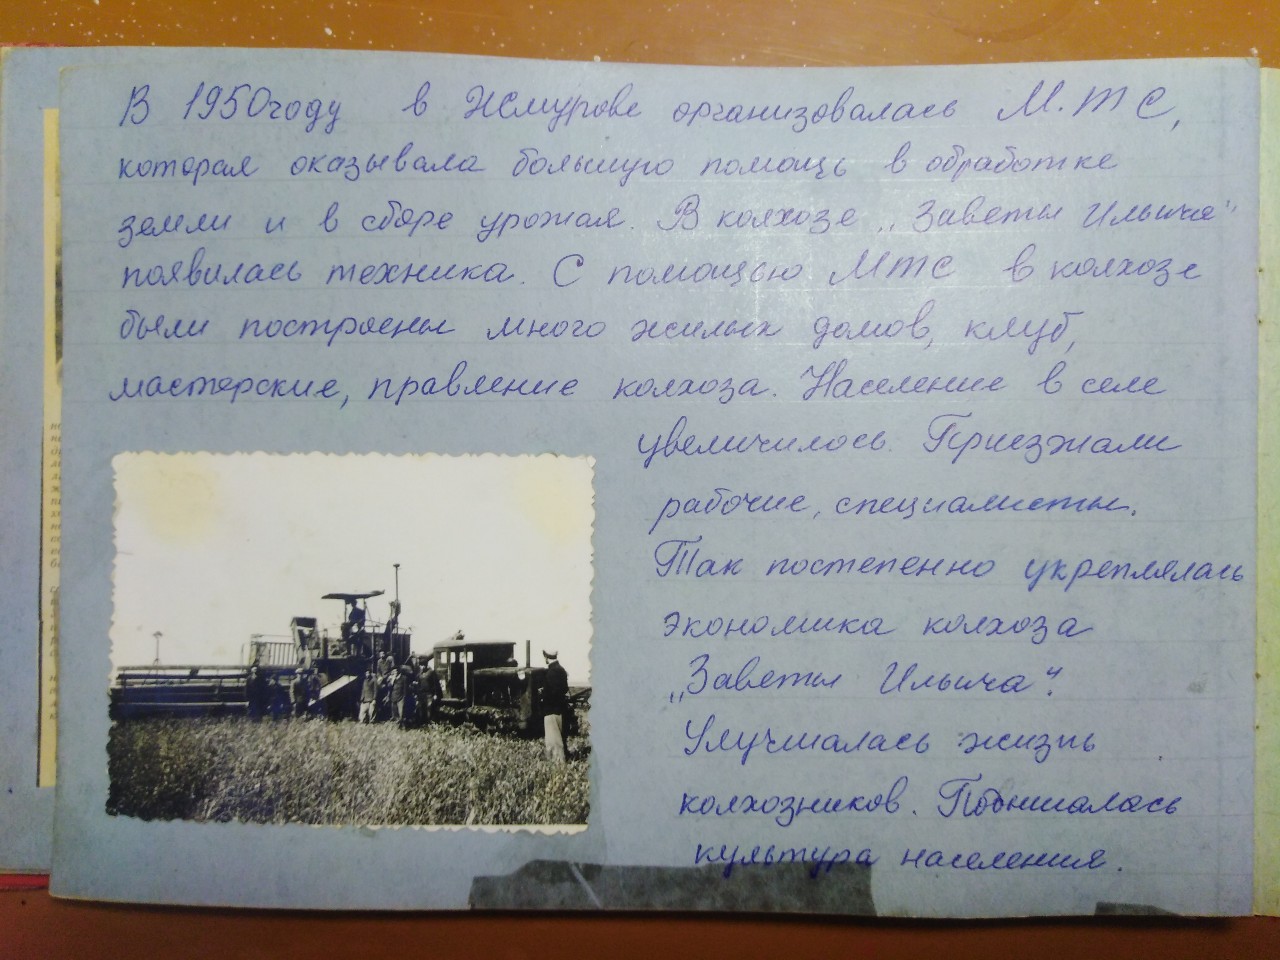 В 1950 году в Жмурове организовалась М.ТС,
которая оказывала большую помощь в обработке
земли и в сборе урожая. В колхозе „Заветы Ильича"
появилась техника. С помощью МТС в колхозе
были построены много жилых домов, клуб,
мастерские, правление колхоза. Население в селе
увеличилось. Приезжали
рабочие, специалисты.
Так постепенно укреплялась
экономика колхоза
„Заветы Ильича".
Улучшалась жизнь
колхозников. Повышалась
культура населения.